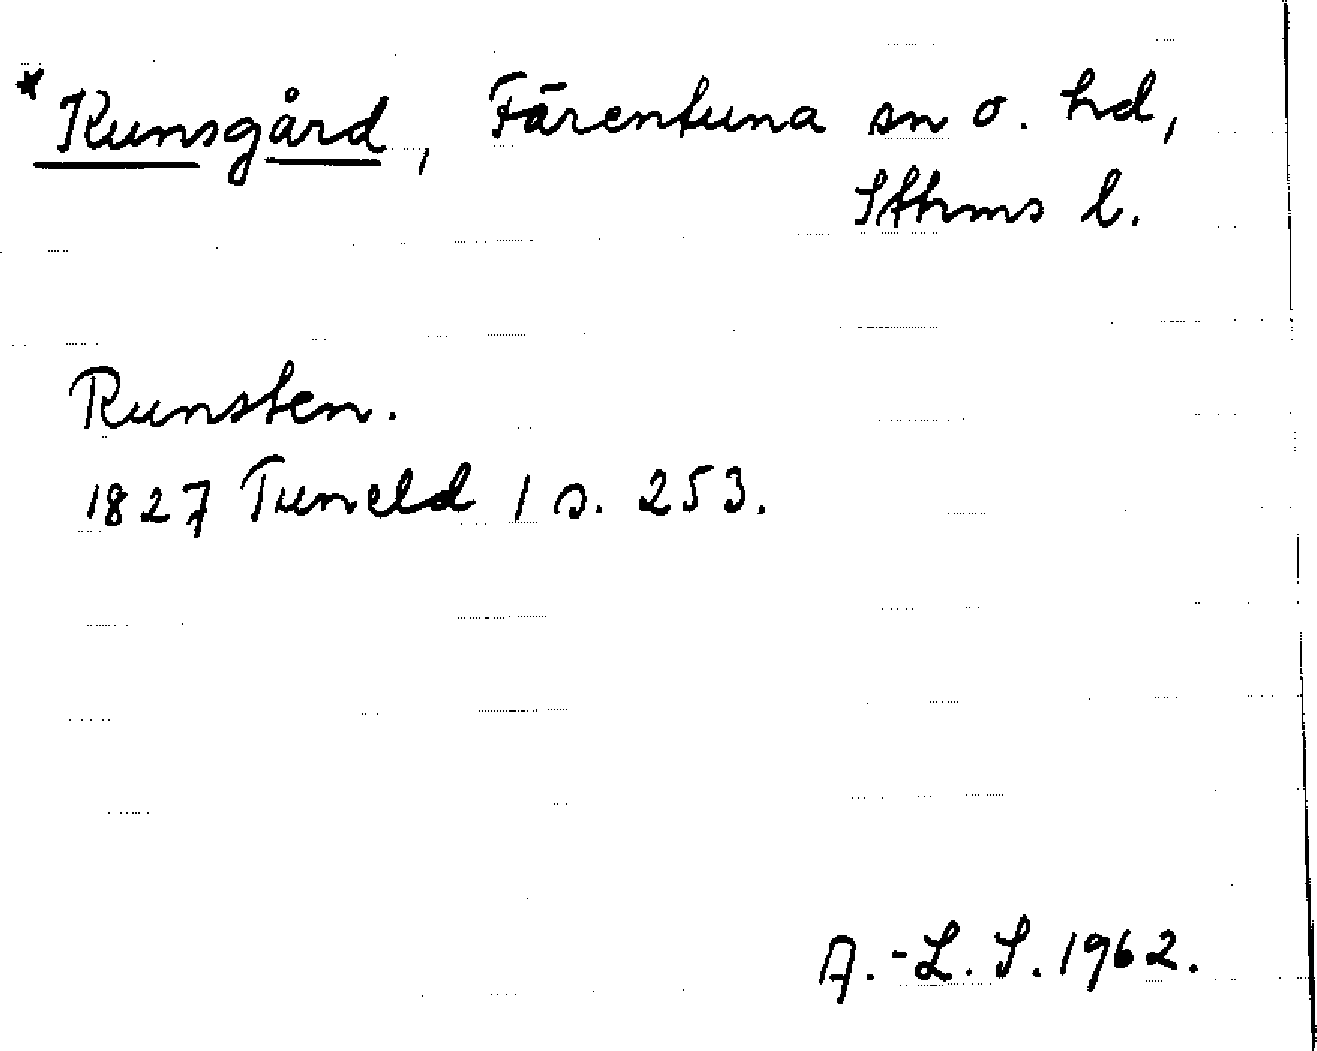 * Kunsgård, Färentuna sn o. hd,
Sthms l.
Runsten.
1827 Tuneld 1 s. 253.
A.-L. S. 1962.